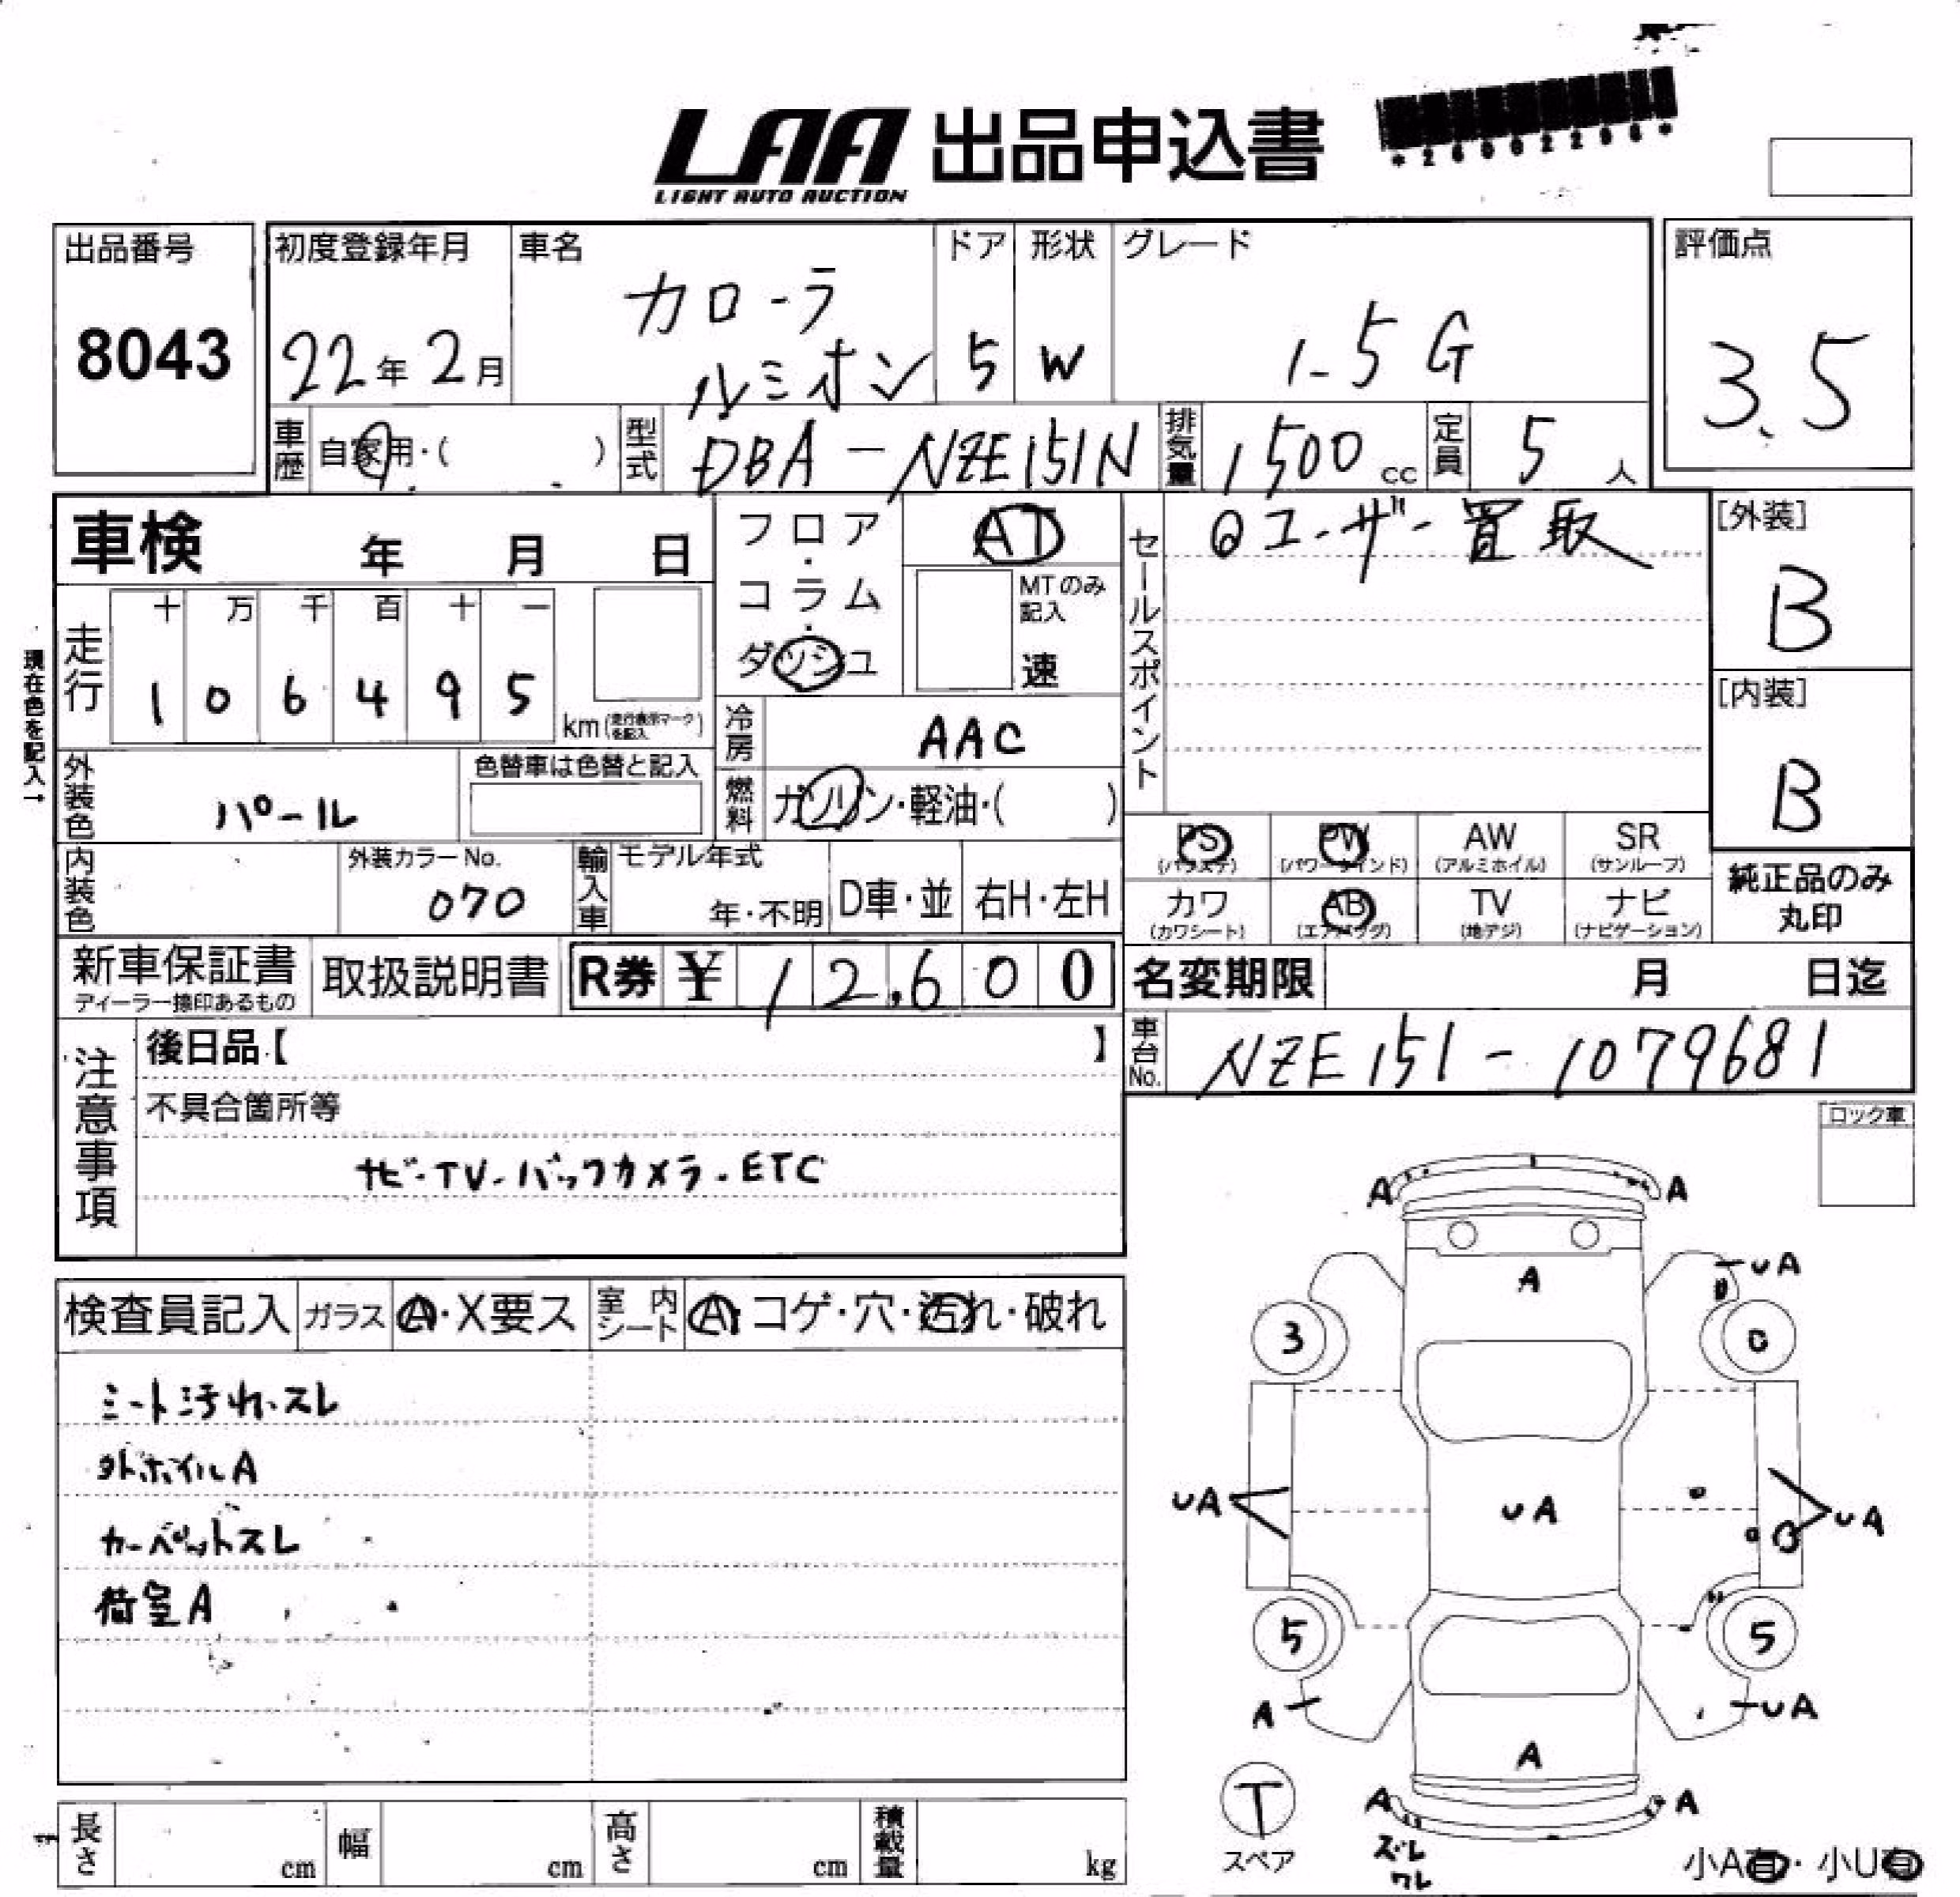 LAA 出品申込書
LIGHT AUTO AUCTION
*26002296*
出品番号
8043
初度登録年月
22年 2月
車名
カローラ
ルミオン
ドア
5
形状
W
グレード
1.5 G
評価点
3.5
車歴 自家用・( )
型式 DBA-NZE151N
排気量 1500 cc
定員 5 人
車検 年 月 日
フロア・コラム・ダッシュ
AT
MTのみ記入
速
セールスポイント
ユーザー買取
[外装]
B
[内装]
B
現在色を記入→
走行
十 万 千 百 十 一
1 0 6 4 9 5
km(走行表示マークを記入)
冷房 AAC
外装色 パール
色替車は色替と記入
燃料 ガソリン・軽油・( )
PS (パワステ)
PW (パワーウインド)
AW (アルミホイル)
SR (サンルーフ)
カワ (カワシート)
AB (エアバッグ)
TV (地デジ)
ナビ (ナビゲーション)
純正品のみ
丸印
内装色
外装カラーNo.
070
輸入車
モデル年式
年・不明
D車・並
右H・左H
新車保証書
ディーラー捺印あるもの
取扱説明書
R券 ¥ 12,600
名変期限 月 日迄
車台No. NZE151-1079681
注意事項
後日品【 】
不具合箇所等
ナビ・TV・バックカメラ・ETC
ロック車
検査員記入 ガラス A・X要ス
室内シート A・コゲ・穴・汚れ・破れ
シート汚れ・スレ
外ホイルA
カーペットスレ
荷室A
A A
A UA
3
UA UA UA
B
5 5
A UA
A
A A
ズレ
ワレ
T
スペア
小A有・小U有
長さ cm
幅 cm
高さ cm
積載量 kg